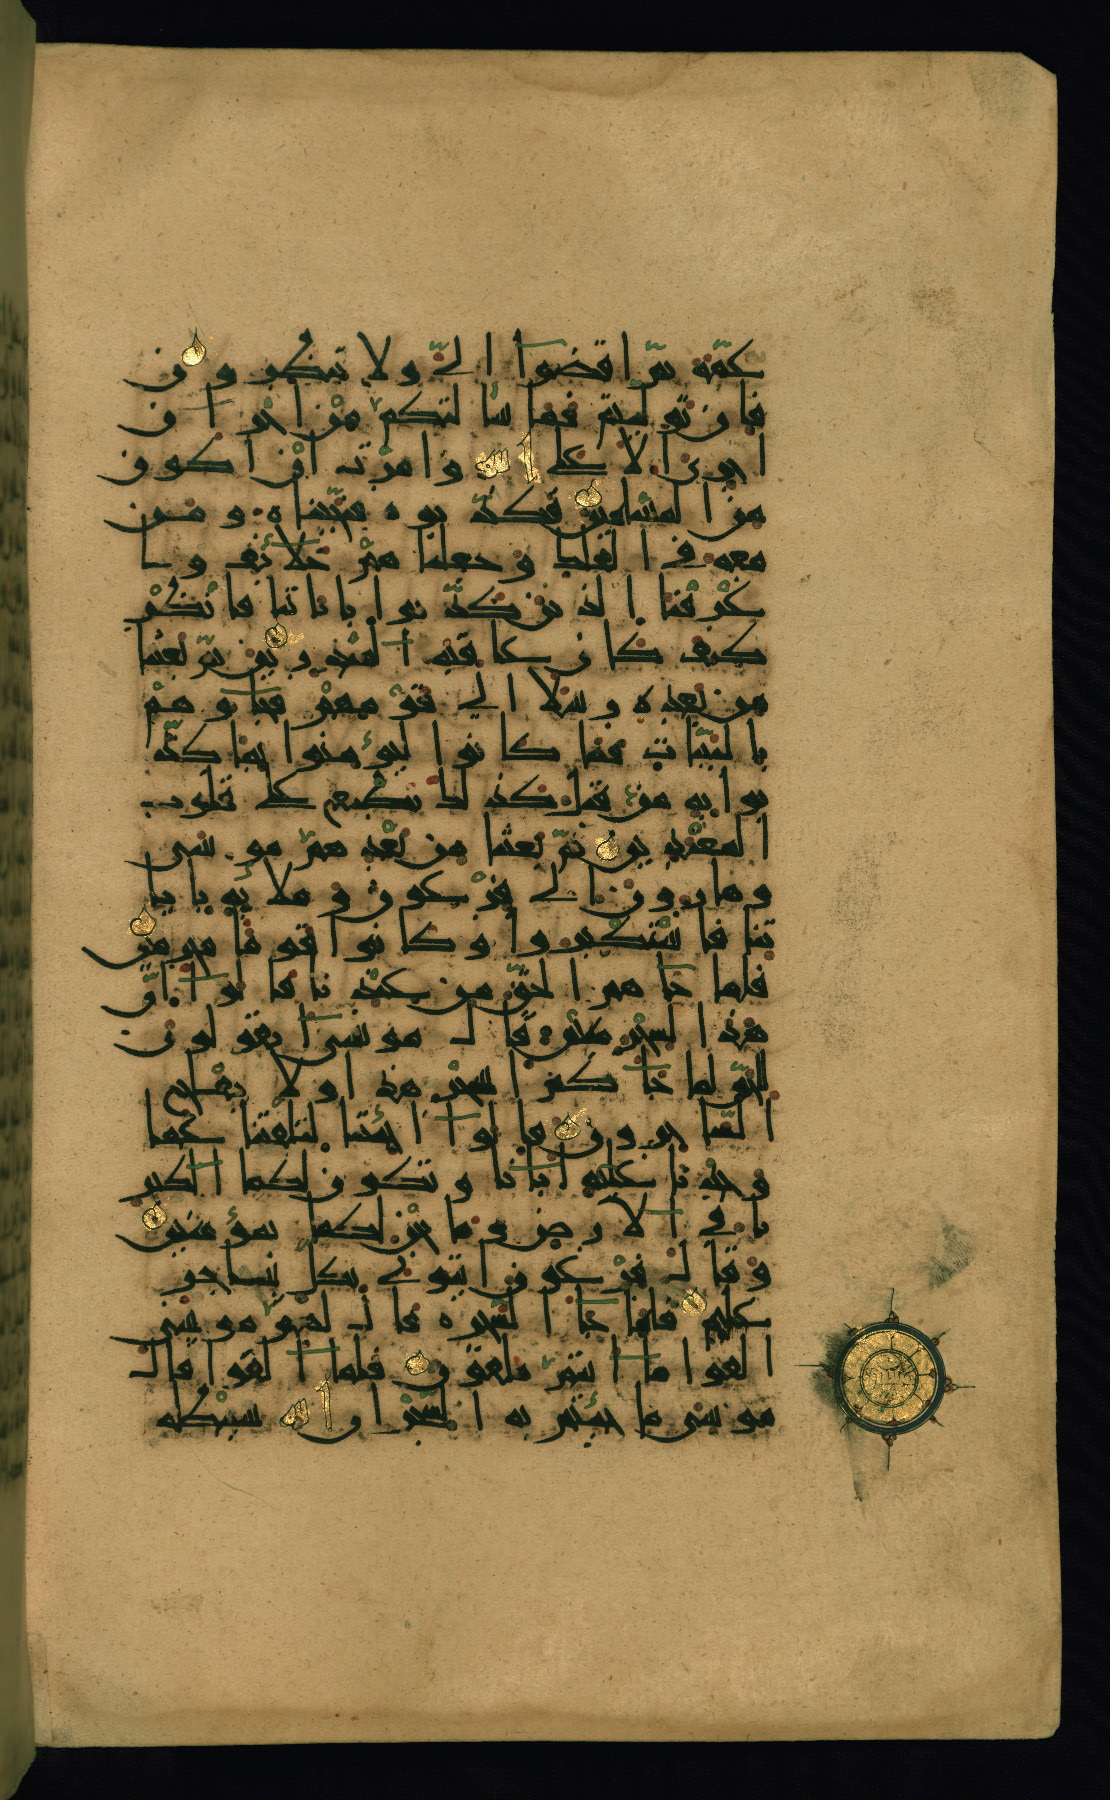 غمة ثم اقضوا الي ولا تنظرون
فان توليتم فما سالتكم من اجر ان
اجري الا على الله وامرت ان اكون
من المسلمين فكذبوه فنجيناه ومن
معه في الفلك وجعلناهم خلائف وا
غرقنا الذين كذبوا باياتنا فانظر
كيف كان عاقبة المنذرين ثم بعثنا
من بعده رسلا الى قومهم فجاوهم
بالبينات فما كانوا ليؤمنوا بما كذ
بوا به من قبل كذلك نطبع على قلوب
المعتدين ثم بعثنا من بعدهم موسى
وهارون الى فرعون وملائه بايا
تنا فاستكبروا وكانوا قوما مجرمين
فلما جاهم الحق من عندنا قالوا ان
هذا لسحر مبين قال موسى اتقولون
للحق لما جاكم اسحر هذا ولا يفلح
الساحرون قالوا اجئتنا لتلفتنا عما
وجدنا عليه ابانا وتكون لكما الكبر
يا في الارض وما نحن لكما بمؤمنين
وقال فرعون ائتوني بكل ساحر
عليم فلما جا السحرة قال لهم موسى
القوا ما انتم ملقون فلما القوا قال
موسى ما جئتم به السحر ان الله سيبطله